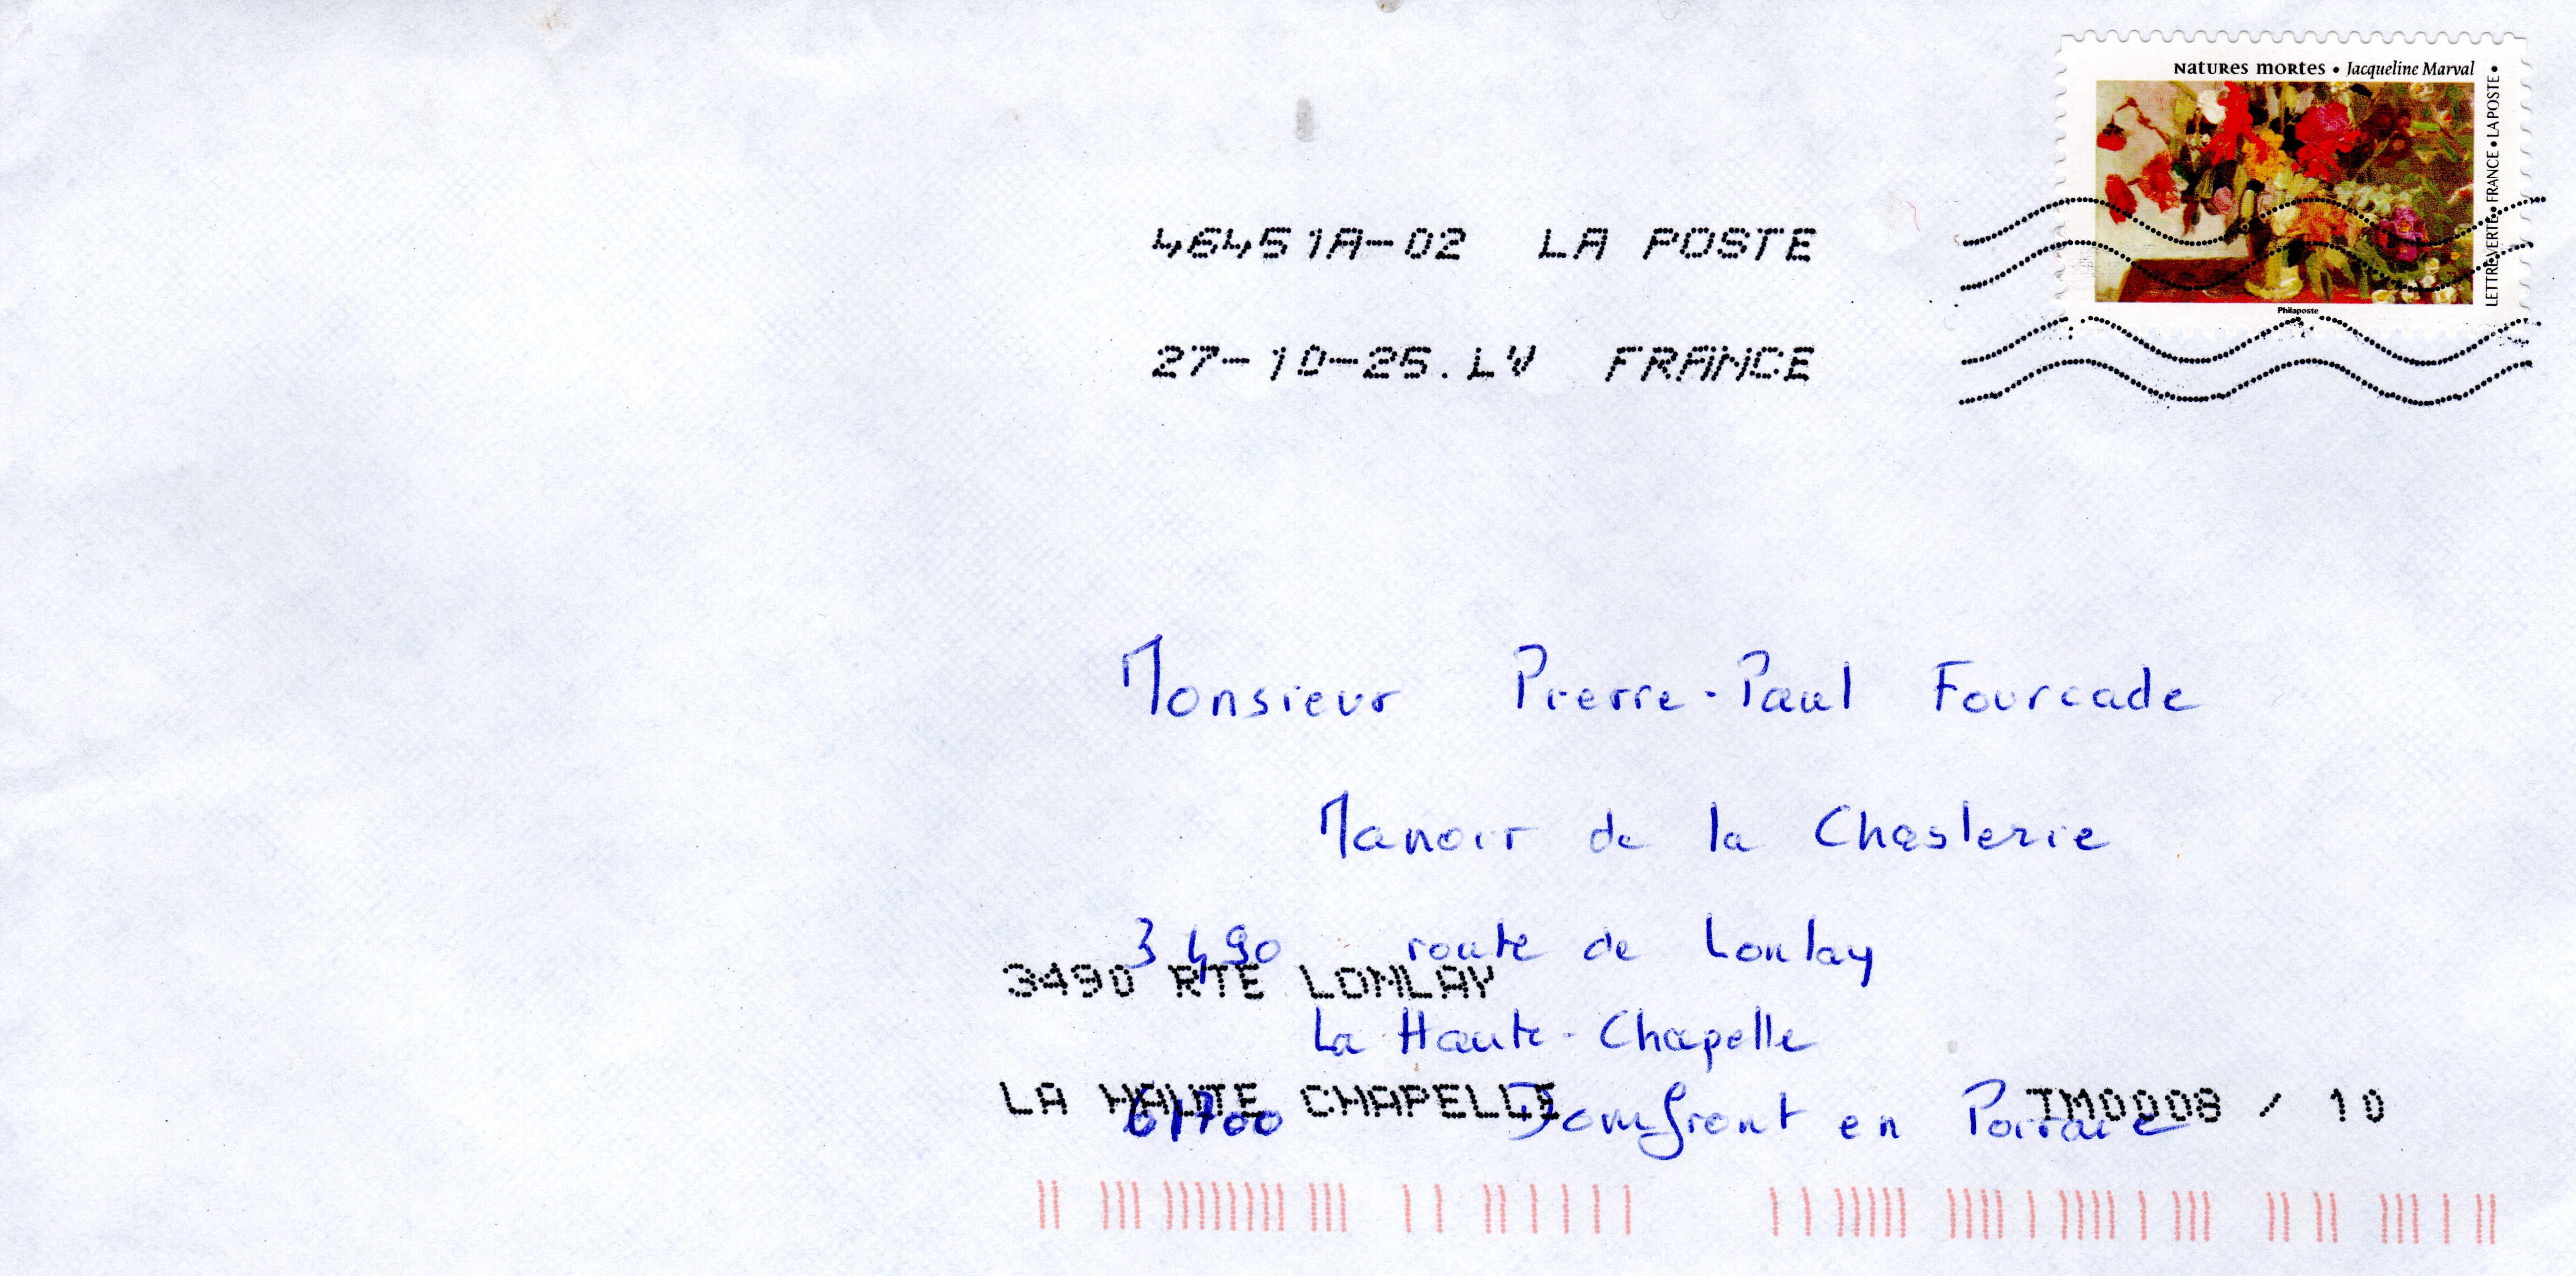 NATURES MORTES • Jacqueline Marval
LETTRE VERTE • FRANCE • LA POSTE •
Philaposte
46451A-02 LA POSTE
27-10-25.LV FRANCE
Monsieur Pierre-Paul Fourcade
Manoir de la Chaslerie
3490 route de Lonlay
3490 RTE LONLAY
La Haute-Chapelle
LA HAUTE CHAPELLE TM0008 / 10
61700 Domfront en Poiraie